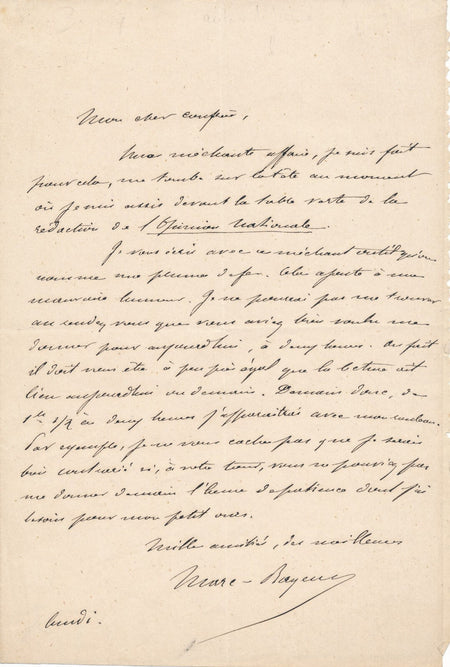 Mon cher confrère,
Une méchante affaire, je suis fait
pour cela, me tombe sur la tête au moment
où je suis assis devant la table verte de la
rédaction de l'Opinion Nationale.
Je vous écris avec ce méchant outil qu'on
nomme une plume de fer. Cela ajoute à ma
mauvaise humeur. Je ne pourrai pas me trouver
au rendez vous que vous aviez bien voulu me
donner pour aujourd'hui, à deux heures. Au fait
il doit vous être à peu près égal que la lecture ait
lieu aujourd'hui ou demain. Demain donc, de
1h 1/2 à deux heures j'apparaîtrai avec mon rouleau.
Par exemple, je ne vous cache pas que je serais
bien contrarié si, à votre tour, vous ne pouviez pas
me donner demain l'heure de patience dont j'ai
besoin pour mon petit ours.
Mille amitiés, des meilleures
Marc-Bayeux
lundi.